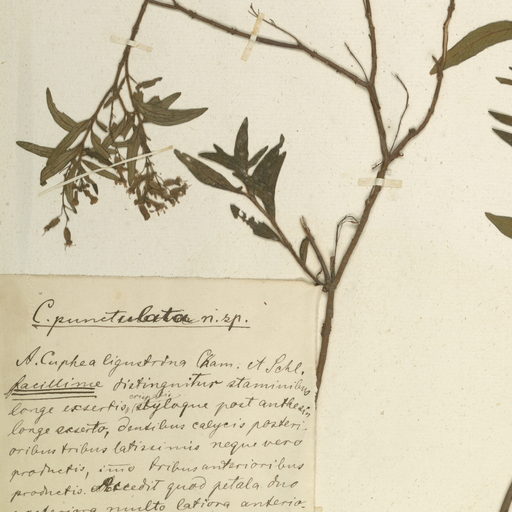 C. punctulata n. sp.
A. Cuphea ligustrina Cham. et Schl.
facillime distinguitur staminibus
longe exsertis, styloque post anthesin
longe exserto, dentibus calycis posteri-
oribus tribus latissimis neque vero
productis, imo tribus anterioribus
productis. Accedit quod petala duo
posteriora multo latiora anterio-